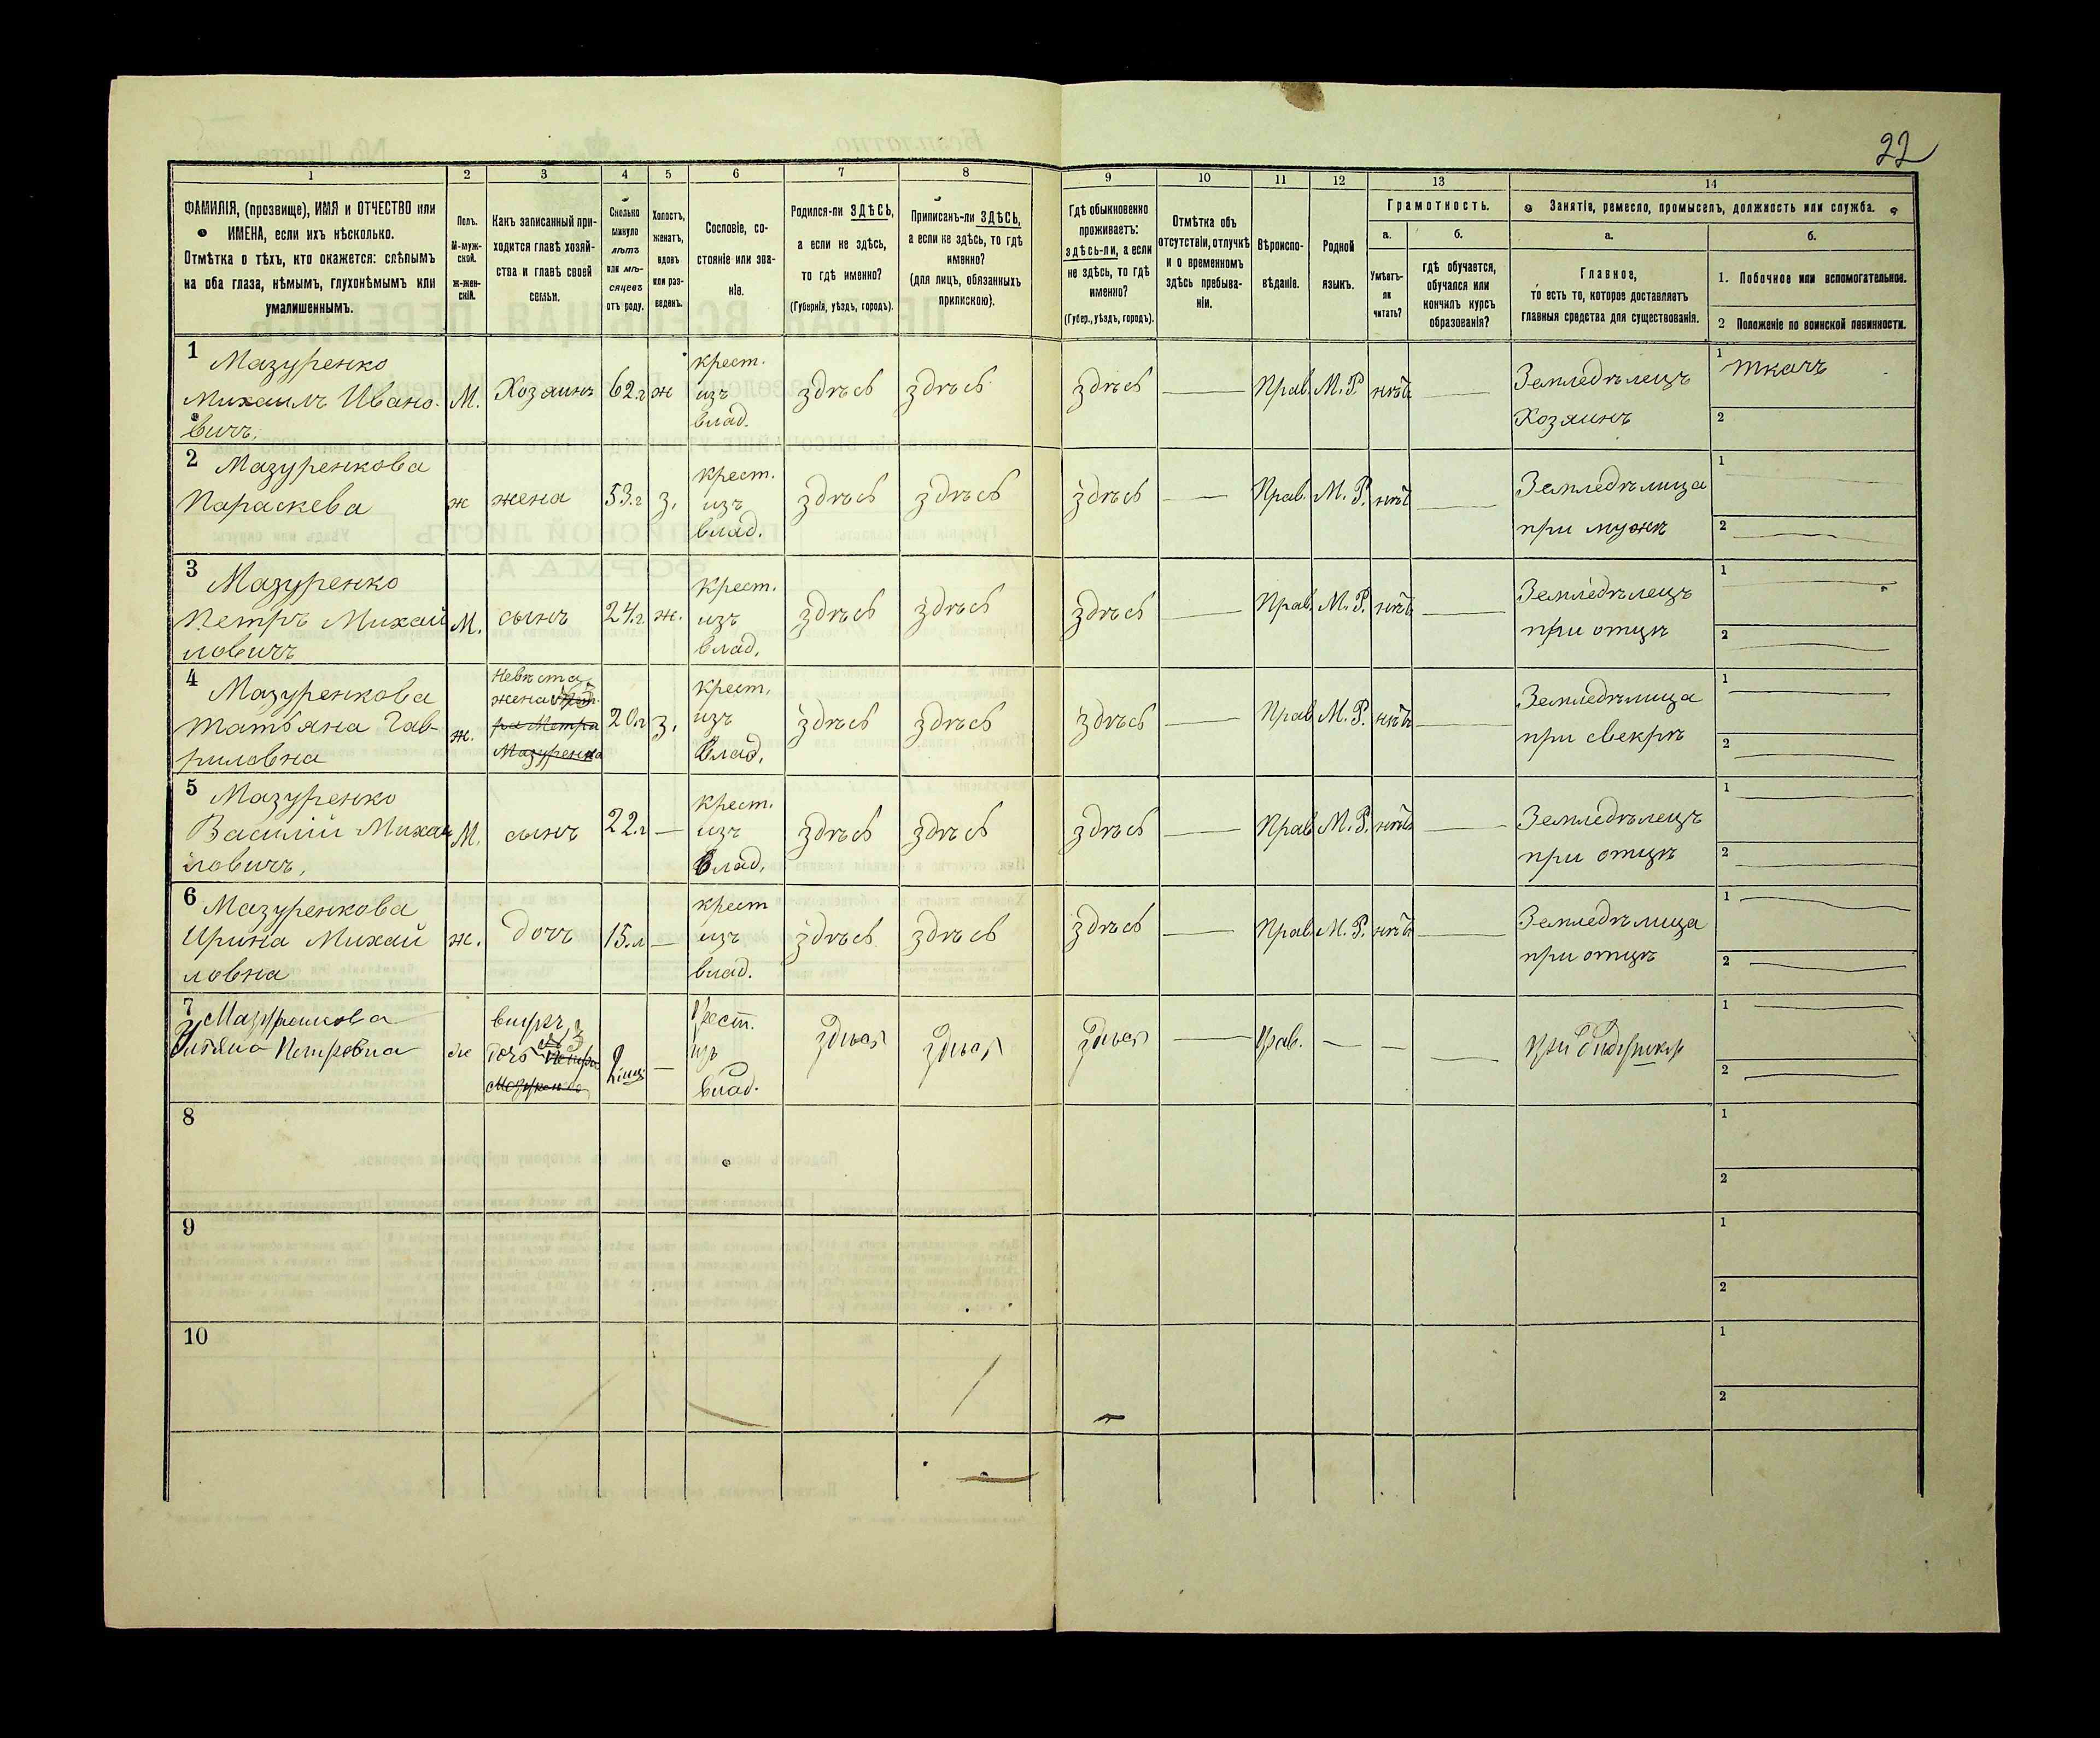 22
1 2 3 4 5 6 7 8 9 10 11 12 13 14
ФАМИЛІЯ, (прозвище), ИМЯ и ОТЧЕСТВО или
ИМЕНА, если ихъ нѣсколько.
Отмѣтка о тѣхъ, кто окажется: слѣпымъ
на оба глаза, нѣмымъ, глухонѣмымъ или
умалишеннымъ.
Полъ.
М-муж-
ской.
Ж-жен-
скій.
Какъ записанный при-
ходится главѣ хозяй-
ства и главѣ своей
семьи.
Сколько
минуло
лѣтъ
или мѣ-
сяцевъ
отъ роду.
Холостъ,
женатъ,
вдовъ
или раз-
веденъ.
Сословіе, со-
стояніе или зва-
ніе.
Родился-ли ЗДѢСЬ,
а если не здѣсь,
то гдѣ именно?
(Губернія, уѣздъ, городъ).
Приписанъ-ли ЗДѢСЬ,
а если не здѣсь, то гдѣ
именно?
(для лицъ, обязанныхъ
припискою).
Гдѣ обыкновенно
проживаетъ:
здѣсь-ли, а если
не здѣсь, то гдѣ
именно?
(Губер., уѣздъ, городъ).
Отмѣтка объ
отсутствіи, отлучкѣ
и о временномъ
здѣсь пребыва-
ніи.
Вѣроиспо-
вѣданіе.
Родной
языкъ.
Грамотность.
а.
Умѣетъ-
ли
читать?
б.
гдѣ обучается,
обучался или
кончилъ курсъ
образованія?
Занятіе, ремесло, промыселъ, должность или служба.
а.
Главное,
то есть то, которое доставляетъ
главныя средства для существованія.
б.
1. Побочное или вспомогательное.
2 Положеніе по воинской повинности.
1
Мазуренко
Михаилъ Ивано-
вичъ.
М.
Хозяинъ
62.г
ж
крест.
изъ
влад.
здѣсь
здѣсь
здѣсь
Прав.
М.Р.
нѣтъ
Земледѣлецъ
Хозяинъ
1 ткачъ
2
2
Мазуренкова
Параскева
ж
жена
53.г
з.
крест.
изъ
влад.
здѣсь
здѣсь
здѣсь
Прав.
М.Р.
нѣтъ
Земледѣлица
при мужѣ
1
2
3
Мазуренко
Петръ Михай
ловичъ
М.
сынъ
24.г
ж.
крест.
изъ
влад.
здѣсь
здѣсь
здѣсь
Прав.
М.Р.
нѣтъ
Земледѣлецъ
при отцѣ
1
2
4
Мазуренкова
Татьяна Гав-
риловна
ж.
невѣста
жена
Петра
Мазуренка
20.г
з.
крест.
изъ
влад.
здѣсь
здѣсь
здѣсь
Прав
М.Р.
нѣтъ
Земледѣлица
при свекрѣ
1
2
5
Мазуренко
Василій Михай
ловичъ.
М.
сынъ
22.г
—
крест.
изъ
влад.
здѣсь
здѣсь
здѣсь
Прав
М.Р.
нѣтъ
Земледѣлецъ
при отцѣ
1
2
6
Мазуренкова
Ирина Михай
ловна
ж.
дочь
15.л
—
крест
изъ
влад.
здѣсь
здѣсь
здѣсь
Прав.
М.Р.
нѣтъ
Земледѣлица
при отцѣ
1
2
7
Мазуренкова
Петровна
ж
дочь Петра
Мазуренко
—
крест.
изъ
влад.
здѣсь
здѣсь
здѣсь
Прав.
—
—
при
1
2
8
1
2
9
1
2
10
1
2